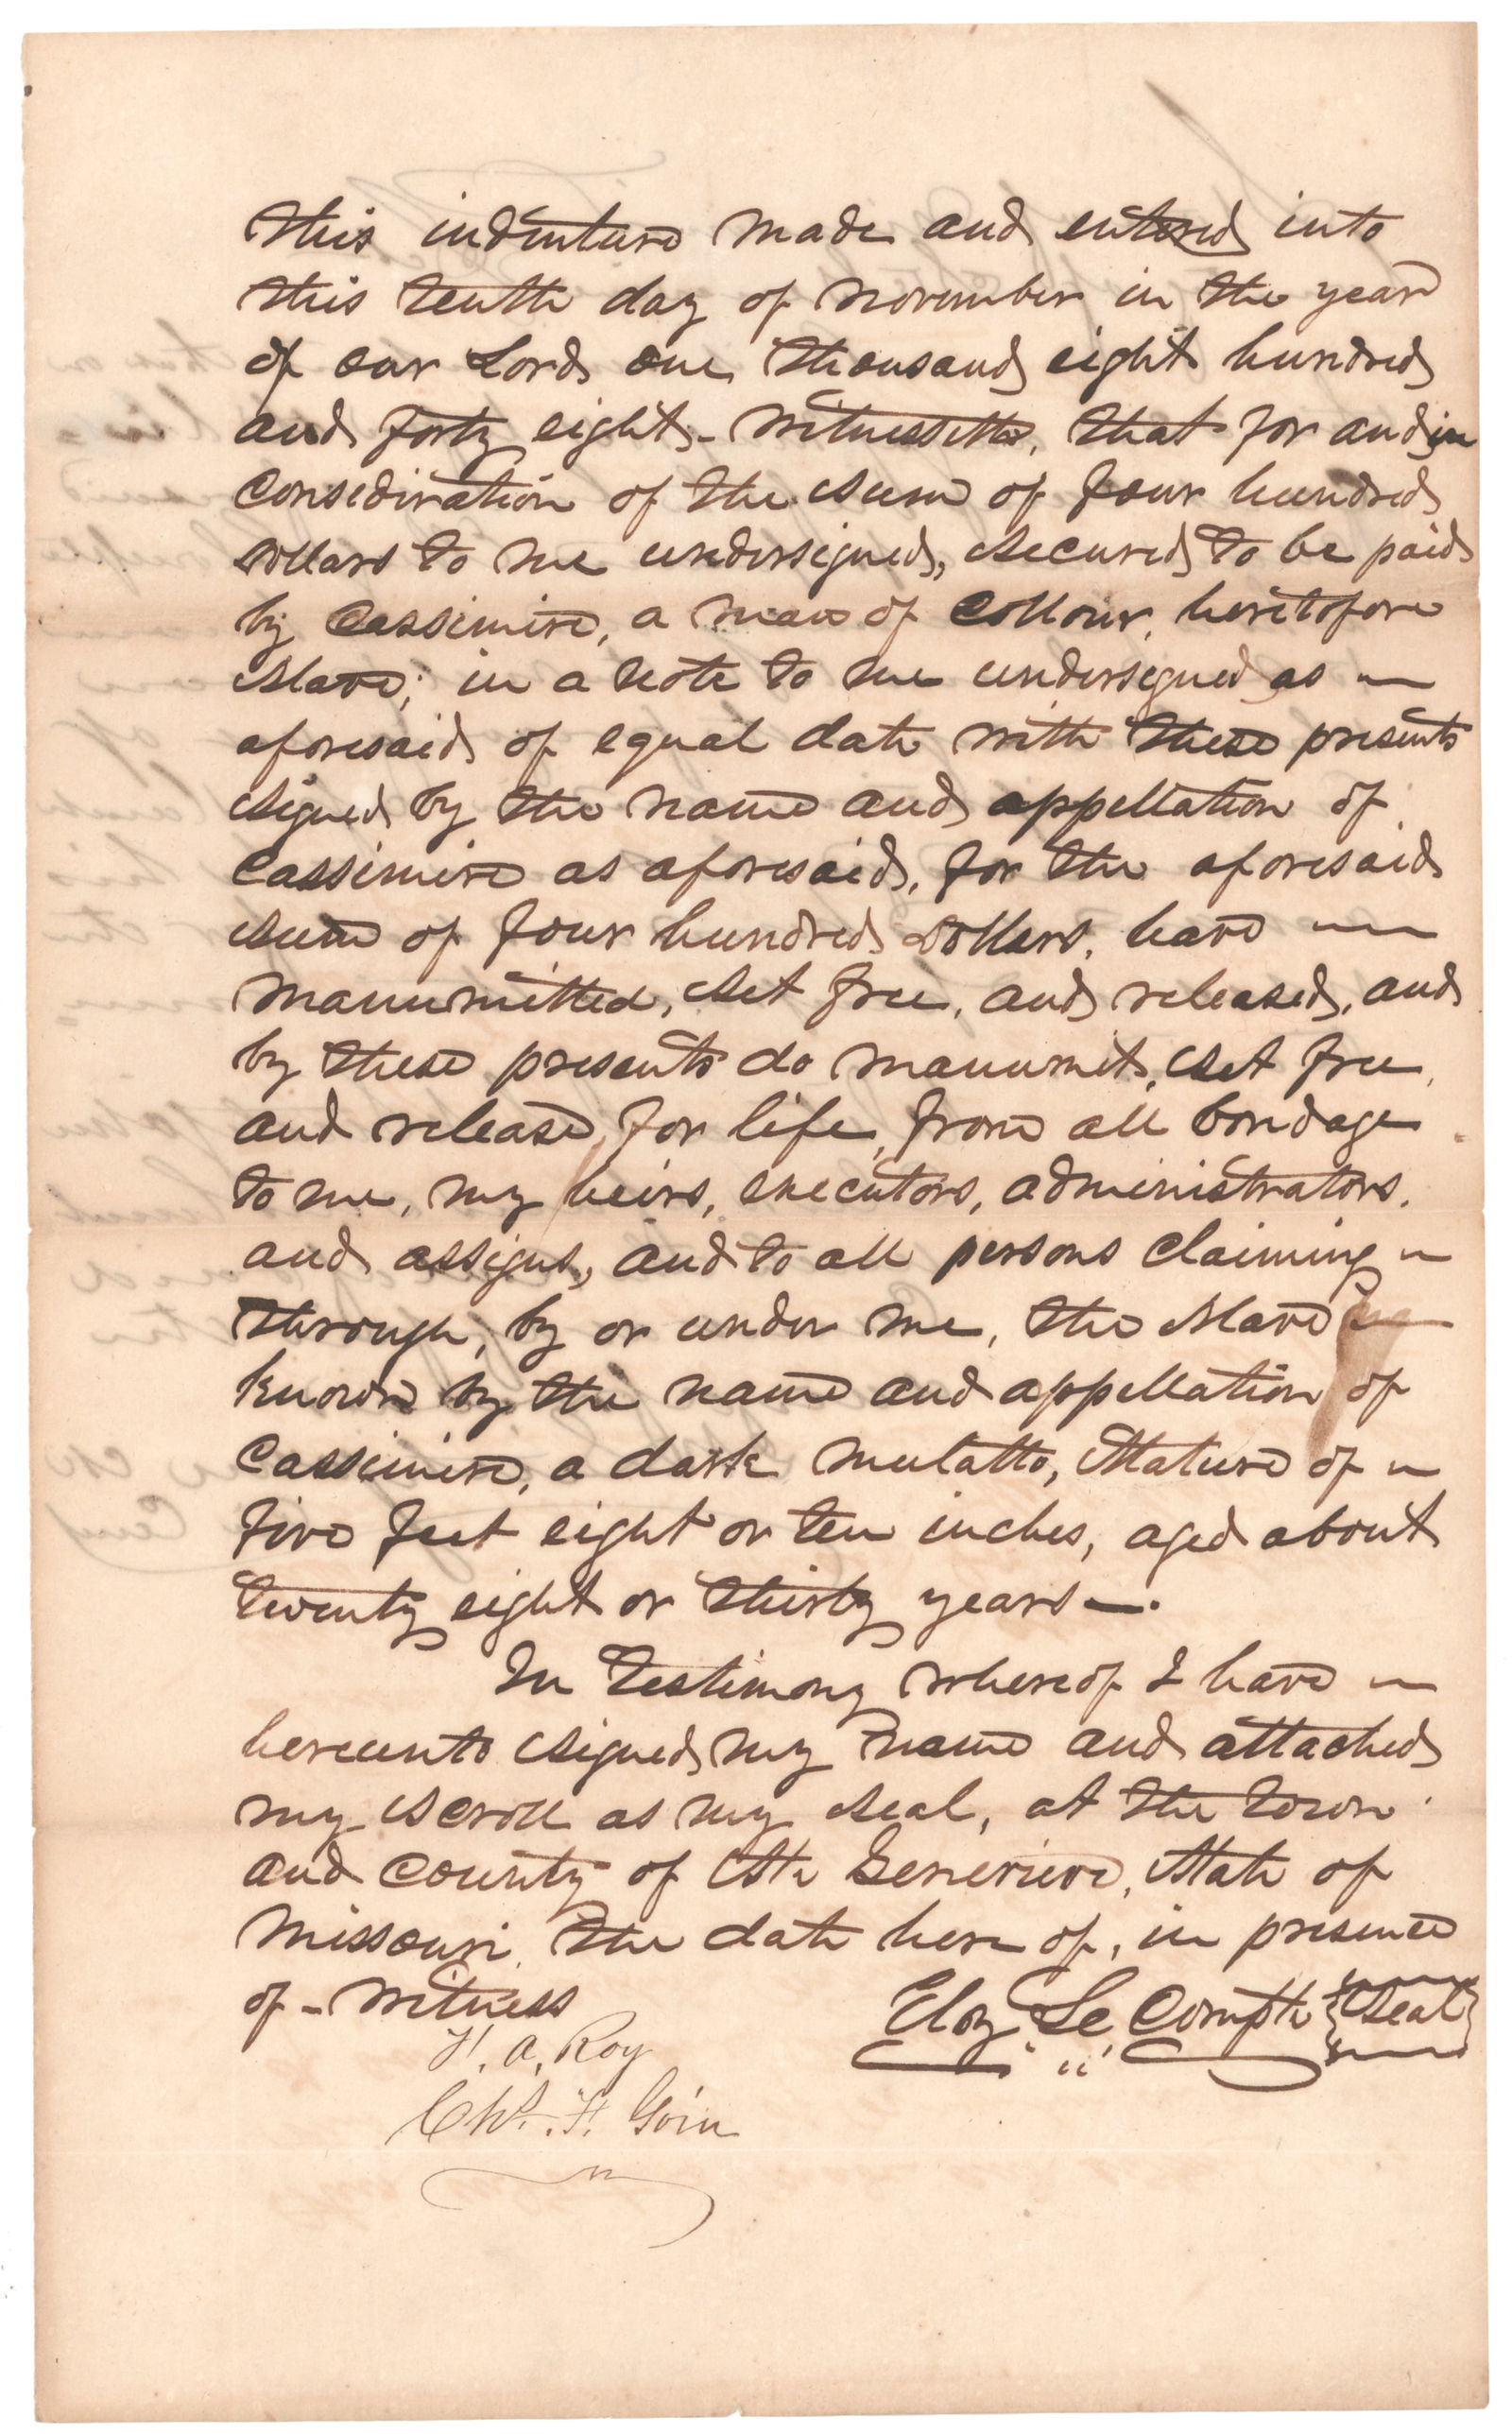 This indenture made and entered into
this tenth day of November in the year
of our Lord one thousand eight hundred
and forty eight - Witnesseth, that for and in
consediration of the sum of four hundred
dollars to me undersigned, secured to be paid
by Cassimire, a man of Collour, heretofore
slave; in a note to me undersigned as
aforesaid of equal date with these presents
signed by the name and appellation of
Cassimire as aforesaid, for the aforesaid
sum of four hundred Dollars, have
manumitted, set free, and released, and
by these presents do manumit, set free,
and release, for life, from all bondage
to me, my heirs, executors, administrators,
and assigns, and to all persons claiming
through, by or under me, the slave
known by the name and appellation of
Cassimire, a dark mulatto, stature of
five feet eight or ten inches, aged about
twenty eight or thirty years —.
In testimony whereof I have
hereunto signed my name and attached
my scroll as my seal, at the town
and county of Ste Genevieve, State of
Missouri, the date here of, in presence
of - Witness
Eloy Le Compte {Seal}
H. A. Roy
Chs. H. Goin